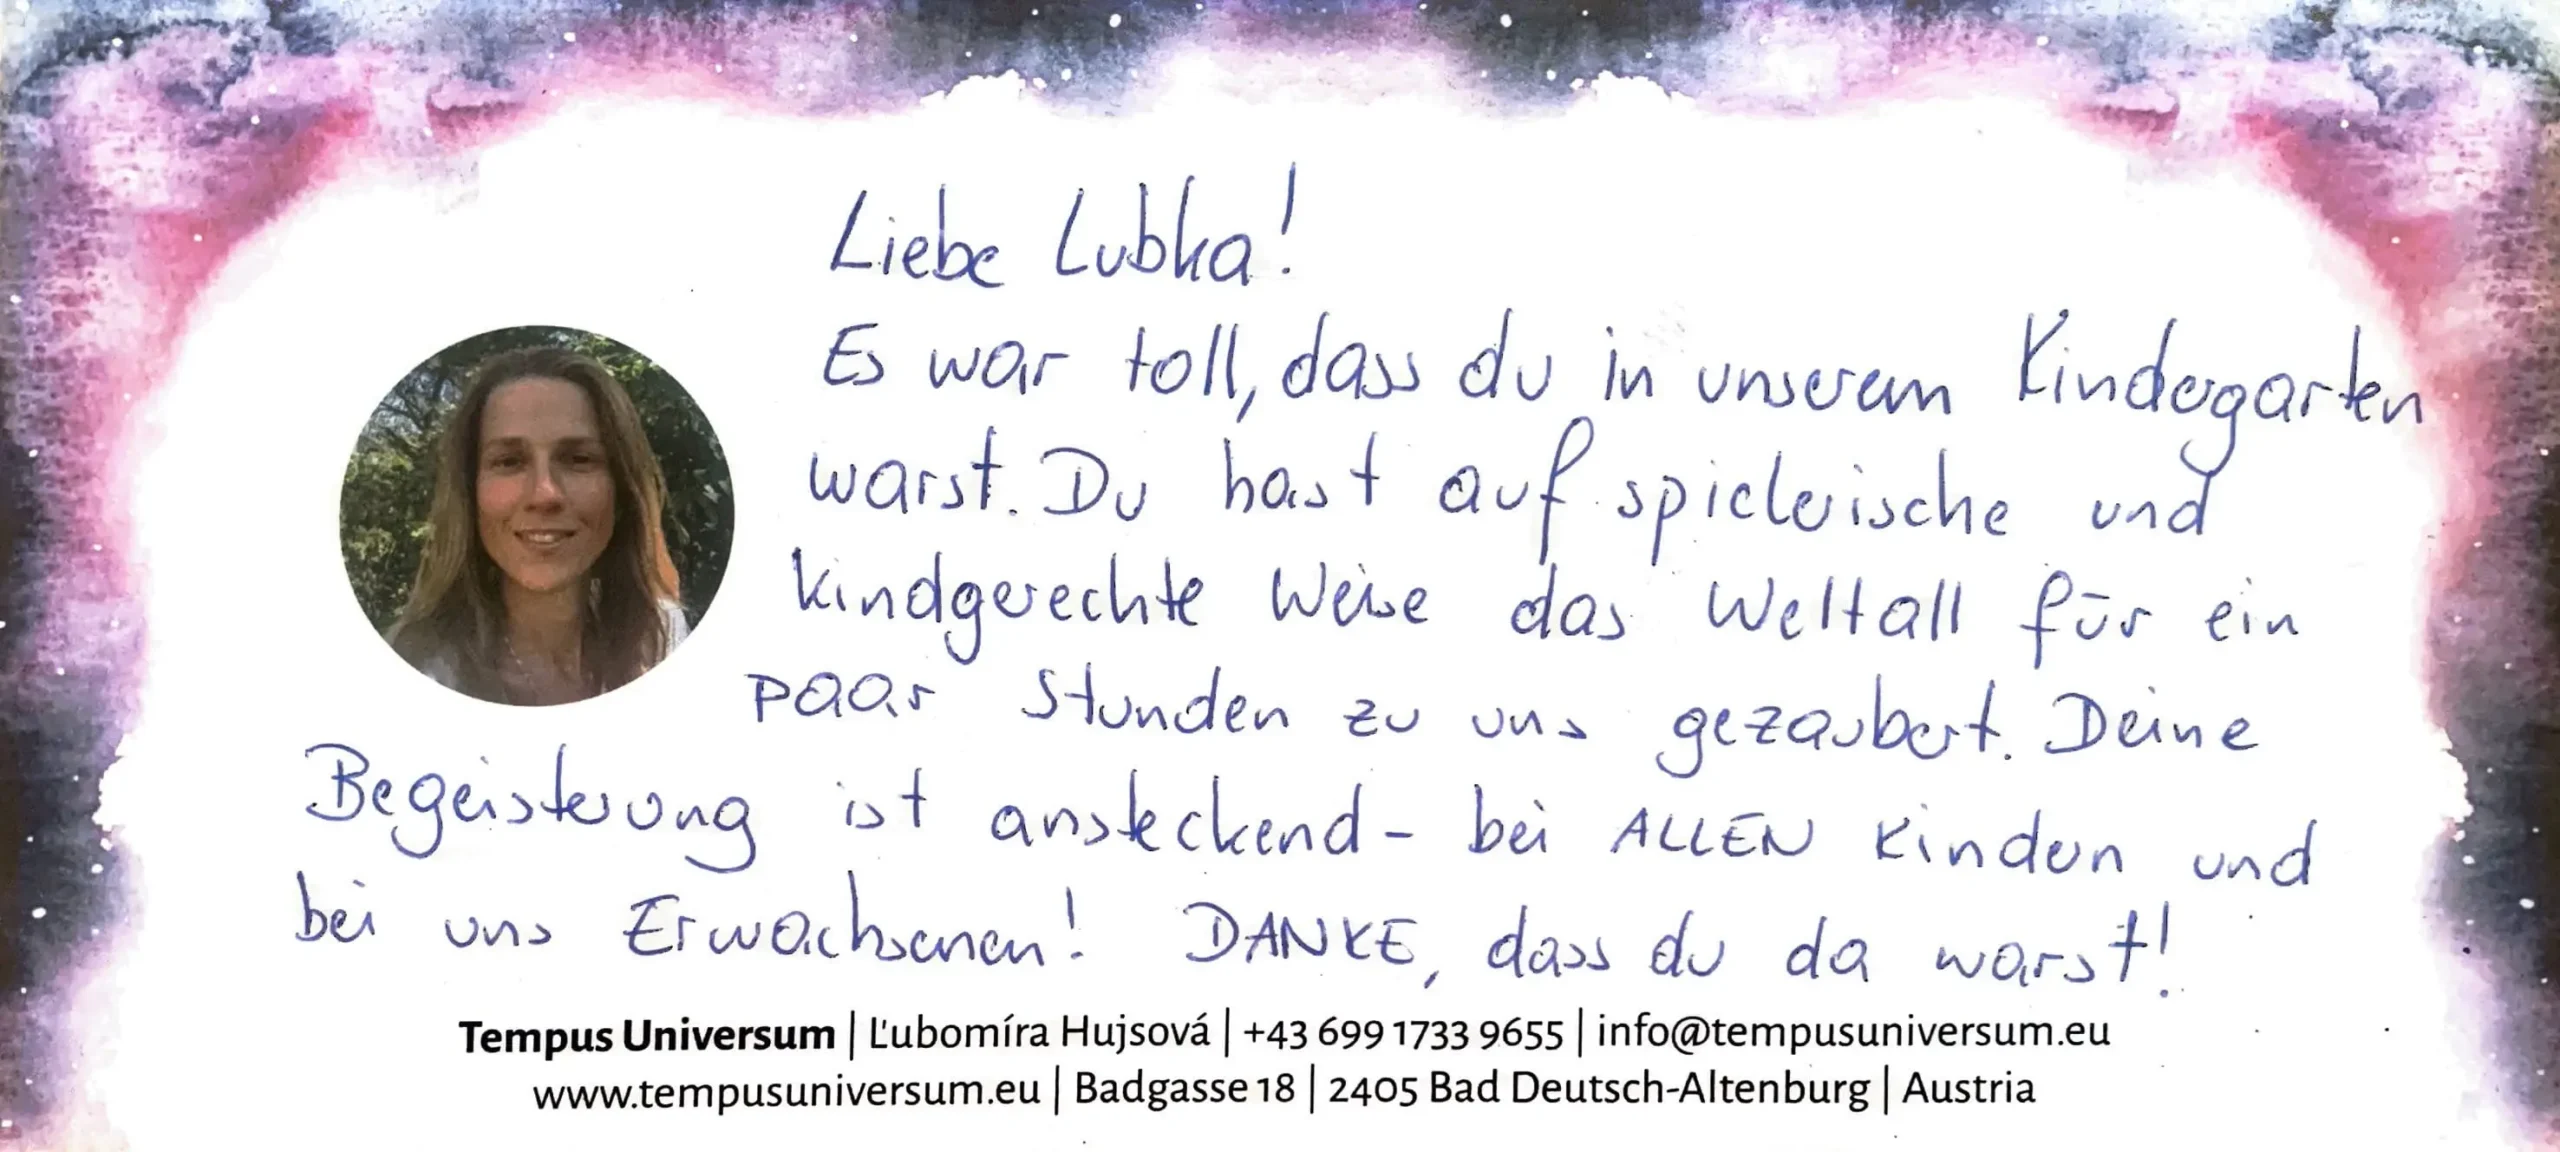 Liebe Lubka!
Es war toll, dass du in unserem Kindergarten
warst. Du hast auf spielerische und
kindgerechte Weise das Weltall für ein
paar Stunden zu uns gezaubert. Deine
Begeisterung ist ansteckend - bei ALLEN Kindern und
bei uns Erwachsenen! DANKE, dass du da warst!
Tempus Universum | Ľubomíra Hujsová | +43 699 1733 9655 | info@tempusuniversum.eu
www.tempusuniversum.eu | Badgasse 18 | 2405 Bad Deutsch-Altenburg | Austria